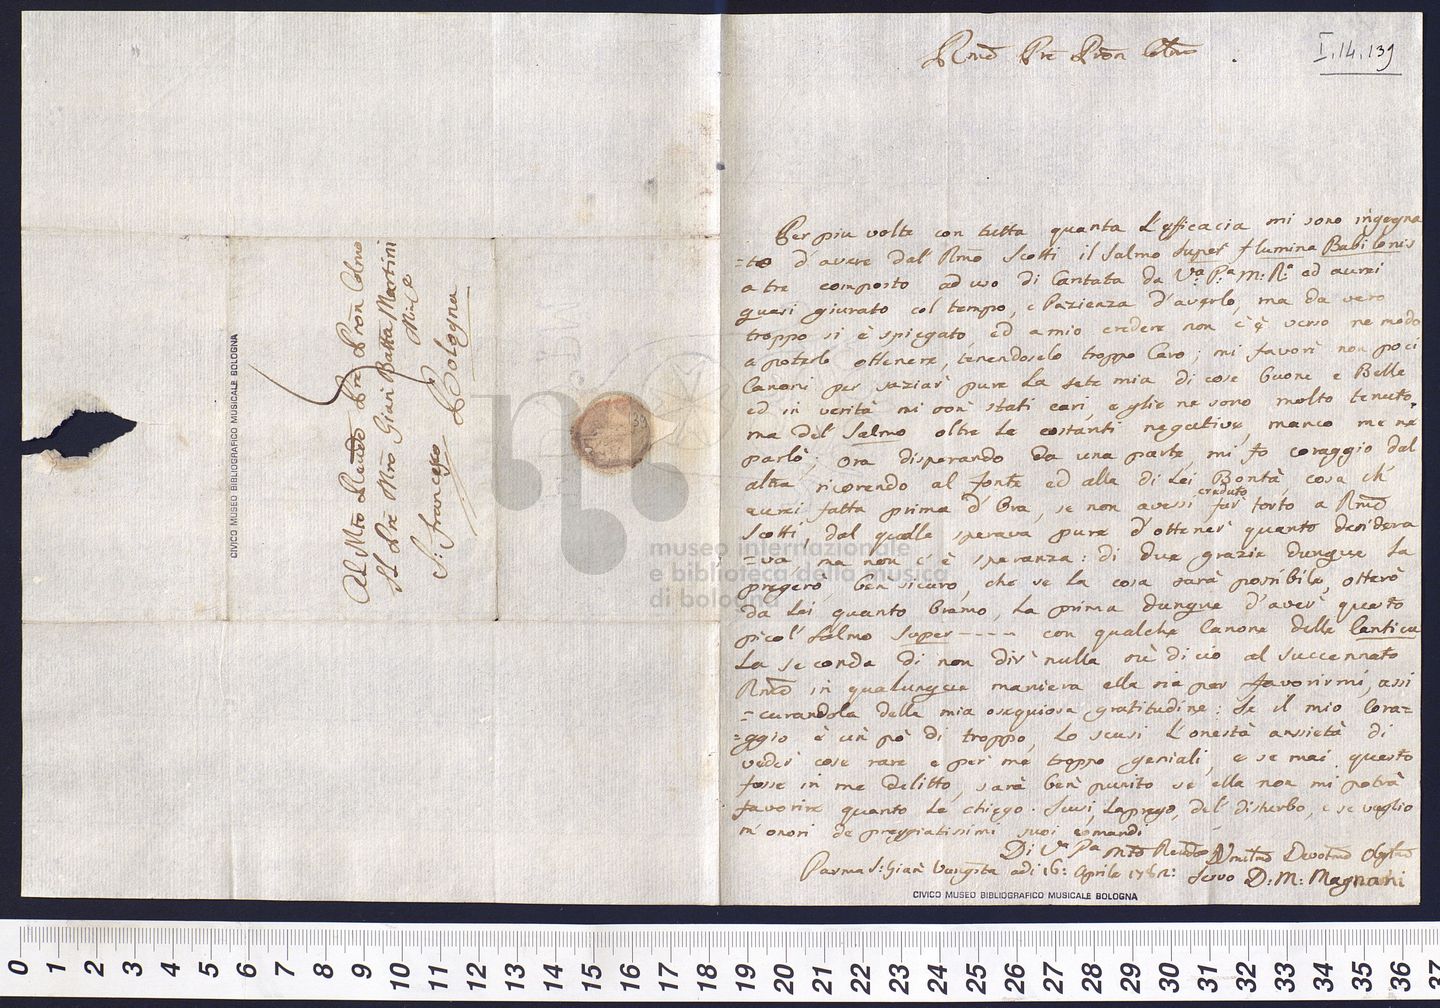 I.14.139
Rmo Pre Pron Colmo
Per piu volte con tutta quanta l'efficacia mi sono ingegna
=to d'avere dal Rmo Scotti il Salmo super flumina Babilonis
a tre composto ad uso di Cantata da V.a P.a M: R.a ed aurei
quasi giurato col tempo, e Pazienza d'averlo, ma da vero
troppo si è spiegato, ed a mio credere non c'è verso ne modo
a poterlo ottenere, tenendoselo troppo Caro; mi favorì non poci
Canoni per saziar pure la sete mia di cose buone e Belle
ed in verità mi son stati cari, e glie ne sono molto tenuto,
ma del Salmo oltre le costanti negative, manco me ne
parlò; ora disperando da una parte mi fo coraggio dal
altra ricorendo al fonte ed alla di Lei Bontà, cosa ch'
aurei fatta prima d'Ora, se non avessi creduto far torto a Rmo
Scotti, dal qualle sperava pure d'ottener quanto desidera
=va, ma non c'è speranza: di due grazie dunque La
pregerò, ben sicuro, che se la cosa sarà possibile, otterò
da Lei quanto bramo, La prima dunque d'aver questo
picol Salmo super---- con qualche Canone delle Cantica
La seconda di non dir nulla sù di ciò al succennato
Rmo in qualunque maniera ella sia per favorirmi, assi
=curandola della mia osequiosa gratitudine: Se il mio Cora=
=ggio è un pò di troppo, Lo scusi L'onestà ansietà di
veder cose rare e per me troppo geniali, e se mai questo
fosse in me delitto, sarà ben punito se ella non mi potrà
favorire quanto Le chiego. Scusi, La prego, del disturbo, e se voglio
m'onori de preggiatissimi suoi comandi
Di V.a P.a Mto Renda Umilmo Devotmo Obgmo
Parma S: Gian Vangsta adi 16: Aprile Servo D: M: Magnani
Al Mto Revdo Pre Pron Colmo
Il Pre Mro Gian Batta Martini
M: C
S: Francesco Bologna
39
CIVICO MUSEO BIBLIOGRAFICO MUSICALE BOLOGNA
CIVICO MUSEO BIBLIOGRAFICO MUSICALE BOLOGNA
museo internazionale
e biblioteca della musica
di bologna
0 1 2 3 4 5 6 7 8 9 10 11 12 13 14 15 16 17 18 19 20 21 22 23 24 25 26 27 28 29 30 31 32 33 34 35 36 37